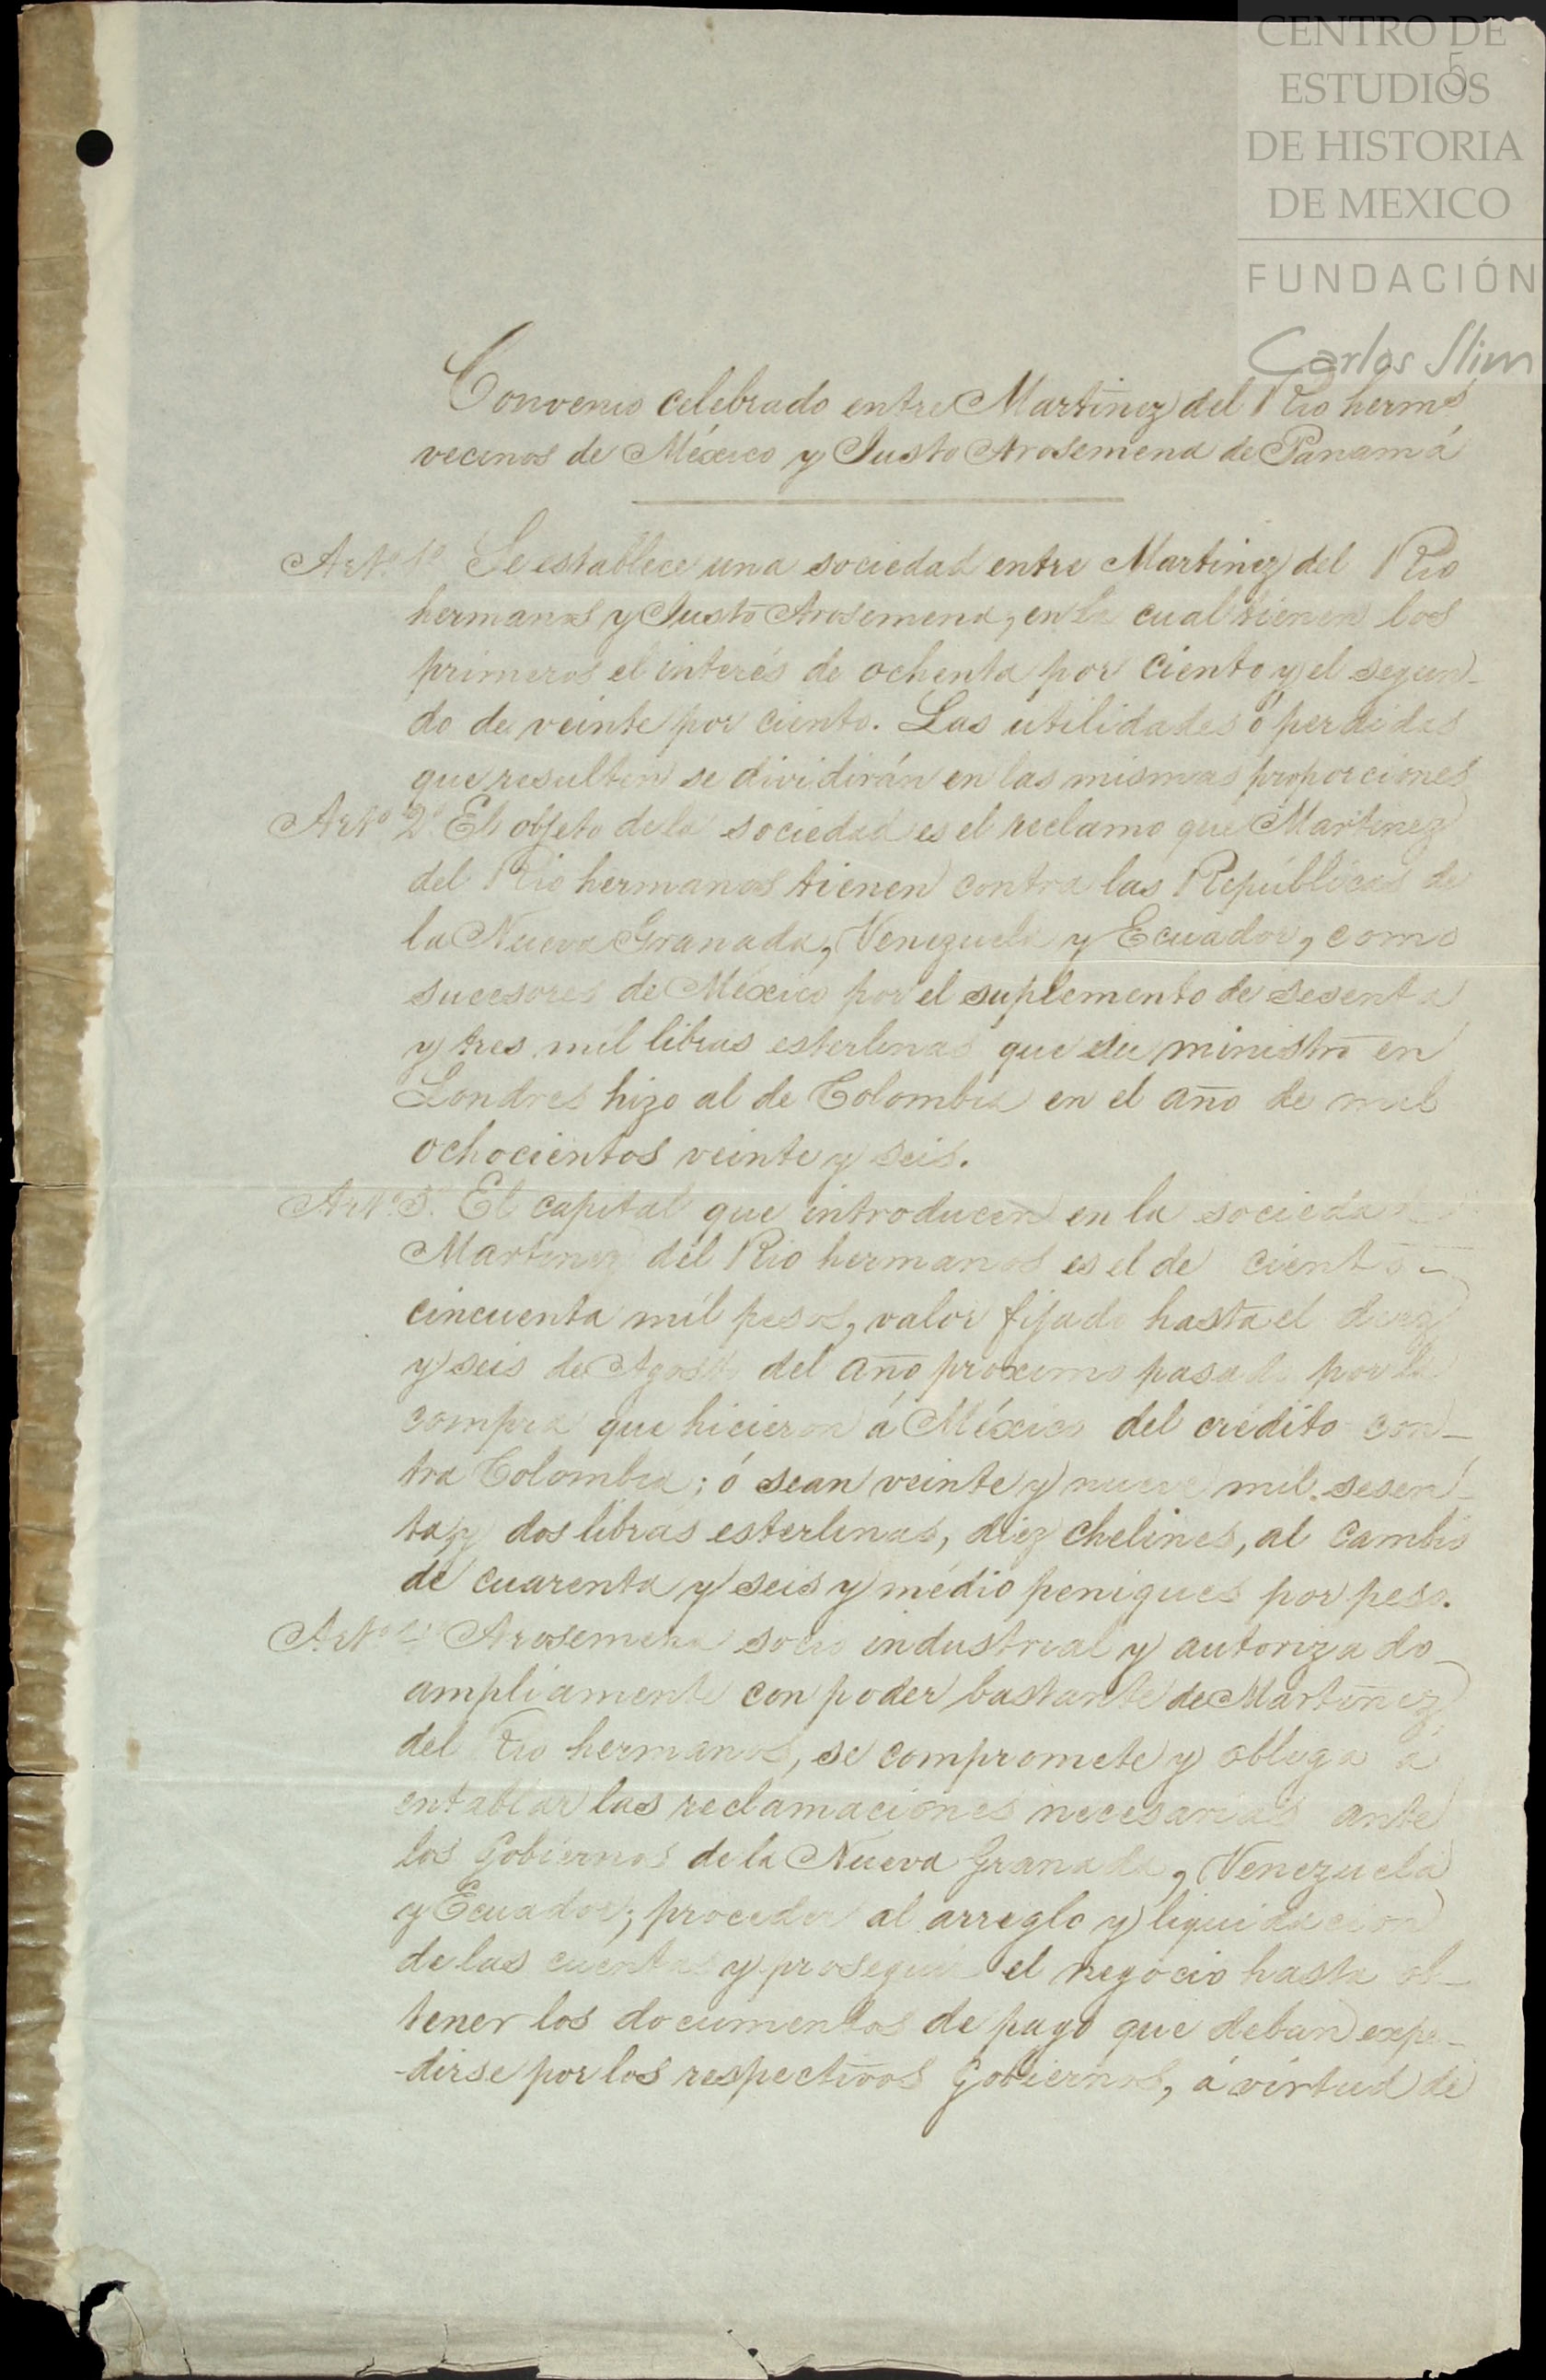 CENTRO DE
ESTUDIOS
DE HISTORIA
DE MEXICO
FUNDACIÓN
Carlos Slim
5
Convenio celebrado entre Martinez del Rio herms
vecinos de México y Justo Arosemena de Panamá
Arto. 1º Se establece una sociedad entre Martinez del Rio
hermanos y Justo Arosemena, en la cual tienen los
primeros el interés de ochenta por ciento y el segun-
do de veinte por ciento. Las utilidades ó perdidas
que resulten se dividirán en las mismas proporciones
Arto 2º El objeto de la sociedad es el reclamo que Martinez
del Rio hermanos tienen contra las Repúblicas de
la Nueva Granada, Venezuela y Ecuador, como
sucesores de México por el suplemento de sesenta
y tres mil libras esterlinas que su ministro en
Londres hizo al de Colombia en el año de mil
ochocientos veinte y seis.
Arto. 3º. El capital que introducen en la sociedad
Martinez del Rio hermanos es el de ciento
cincuenta mil pesos, valor fijado hasta el diez
y seis de Agosto del año próximo pasado por la
compra que hicieron á México del crédito con-
tra Colombia; ó sean veinte y nueve mil sesen-
ta y dos libras esterlinas, diez chelines, al cambio
de cuarenta y seis y médio peniques por peso.
Arto 4º Arosemena socio industrial y autorizado
ampliamente con poder bastante de Martinez
del Rio hermanos, se compromete y obliga á
entablar las reclamaciones necesarias ante
los Gobiernos de la Nueva Granada, Venezuela
y Ecuador; proceder al arreglo y liquidacion
de las cuentas y proseguir el negocio hasta ob-
tener los documentos de pago que deban expe-
-dirse por los respectivos Gobiernos, á virtud de